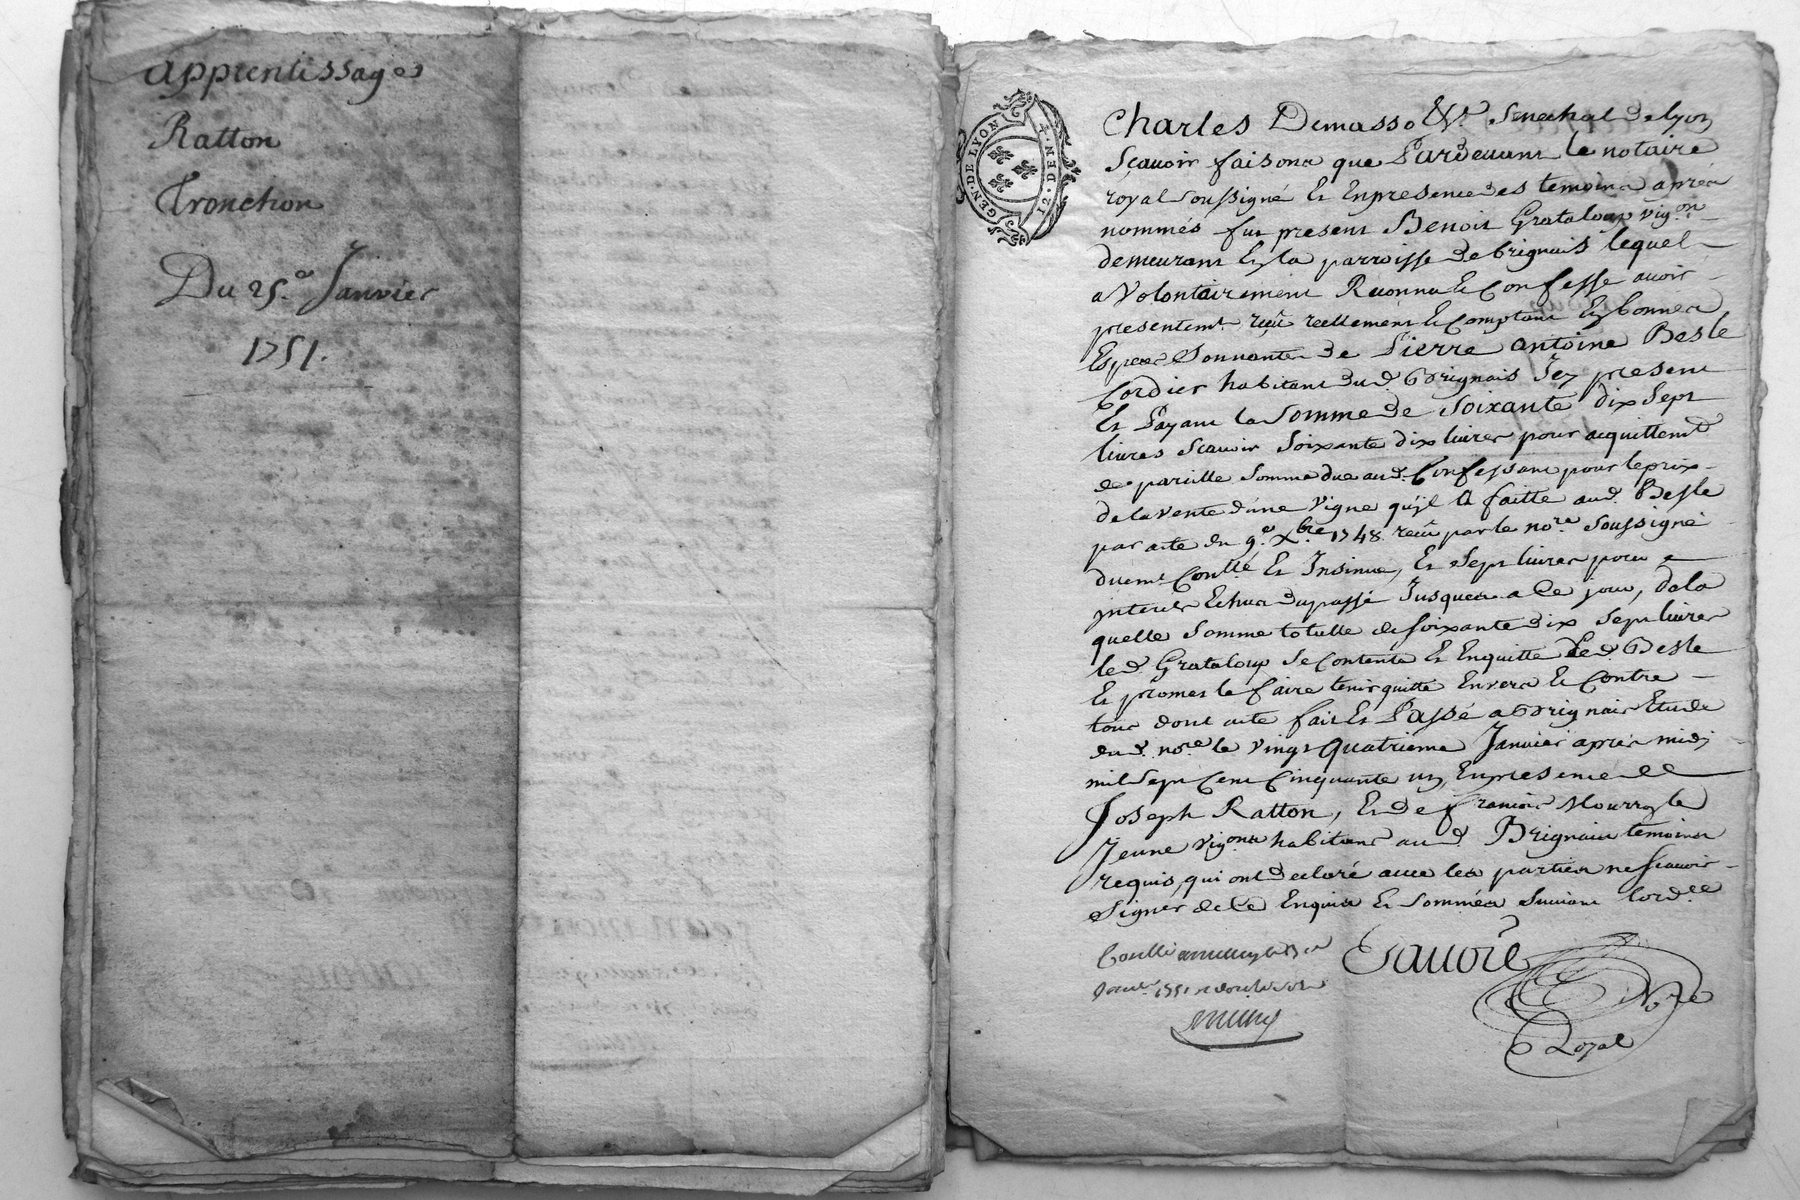 apprentissage
Ratton
Tronchon
Du 25.e Janvier
1751.
GEN·DE LYON
12·DEN·
Charles Demasso &r Senechal de lyon
Sçauoir faisons que Pardeuant le notaire
royal soussigné Et Enpresence des temoins aprés
nommés fut present Benoit Grataloup vig.on
demeurant En la parroisse de brignais lequel
a Volontairement Reconnu & Confesse auoir
presentemt. reçû reellement & Comptant En bonnes
Especes Sonnantes de Pierre antoine Besle
Cordier habitant dud. Brignais Icy present
Et Payant la Somme de Soixante dix Sept
liures Scauoir Soixante dix liures pour acquittemt.
de pareille Somme due aud. Confessant pour le prix
de la vente d'une Vigne qu'jl a faitte aud. Besle
par acte du 9.e Xbre 1748. reçû par le no.re Soussigné
duemt. Contllé Et Insinué, Et Sept liures pour
jnterets Echus du passé Jusques a Ce jour, de la
quelle Somme totalle de soixante dix Sept liures
led. Grataloup Se Contente Et Enquitte led. Besle
Et promet le faire tenir quitte Envers & Contre
tous dont acte fait Et Passé a Brignais Etude
dud. no.re le vingt Quatrieme Janvier aprés midy
mil Sept Cent Cinquante un, Enpresence de
Joseph Ratton, Et de francois Mourry le
Jeune vig.ons habitans aud. Brignais temoins
requis, qui ont declaré auec les parties ne Scauoir
Signer de Ce Enquis Et Sommés Suiuant l'ord.ce
Contllé
1751
No.re
Royal